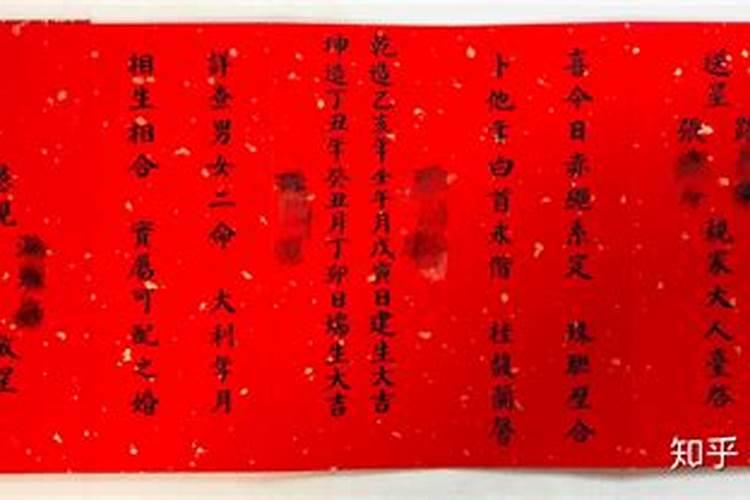 送呈 張 親家大人臺啓
喜今日赤繩系定 珠聯壁合
卜他年白首永偕 桂馥蘭馨
乾造乙亥年壬午月戊寅日建生大吉
坤造丁丑年癸丑月丁卯日生大吉
詳查男女二命 大利年月
相生相合 實屬可配之婚
敬呈
知乎